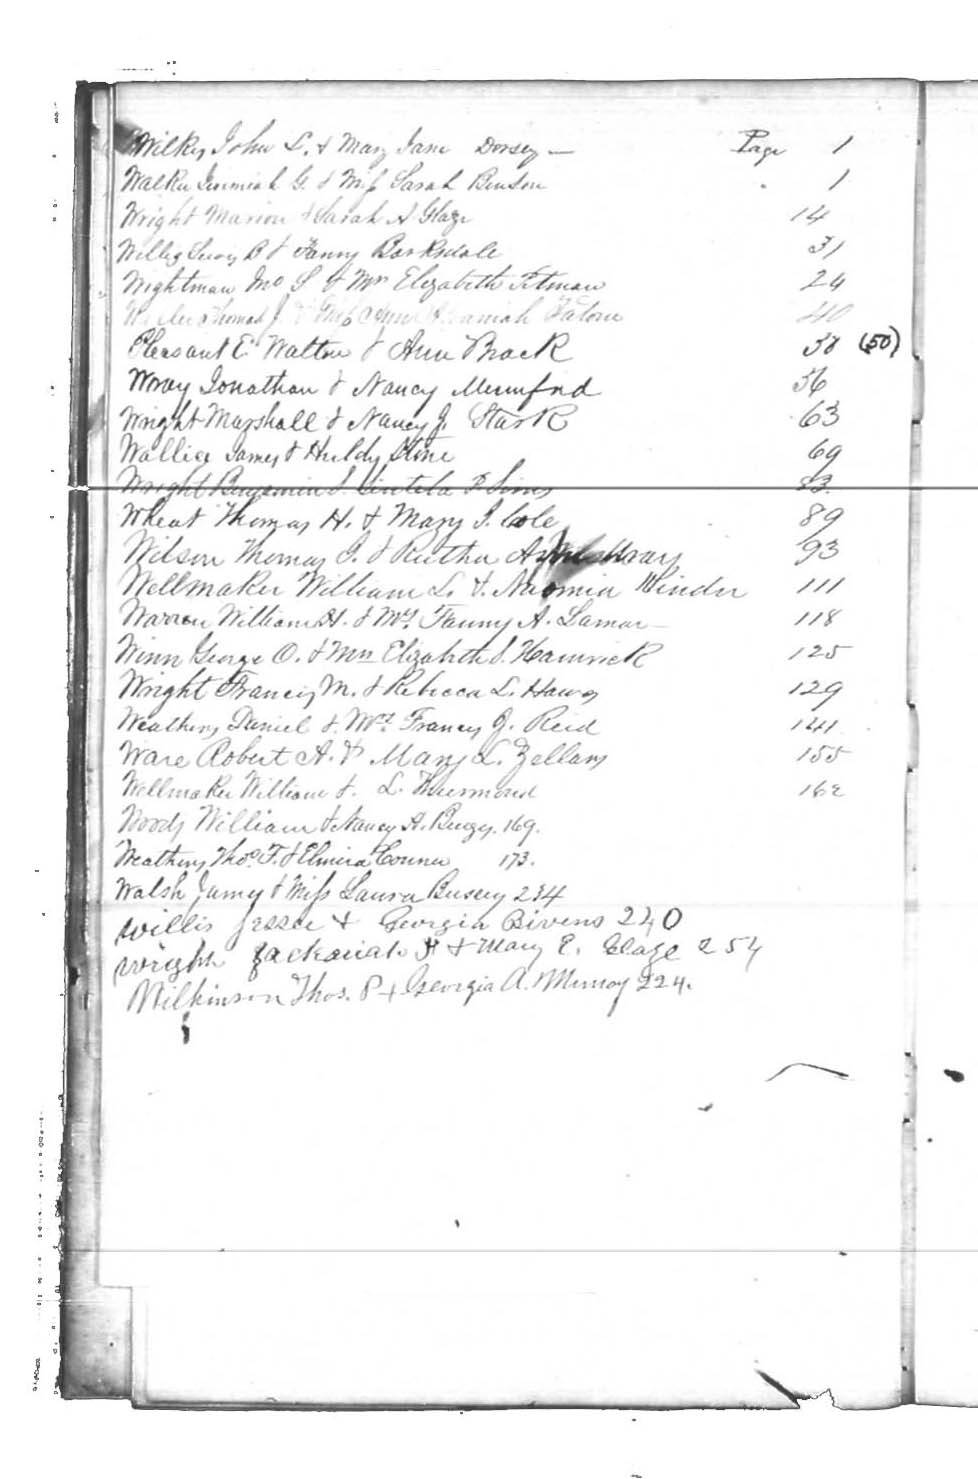 Wilkes John L. & Mary Jane Dorsey — Page 1
Walker Jeremiah G. & Miss Sarah Benson 1
Wright Marion & Sarah A Glaze 14
Willis B & Fanny Barksdale 31
Wightman Jno S & Mrs Elizabeth Pitman 24
Thomas J. & Miss 40
Pleasant E. Walton & Ann Brack 50 (50)
Wray Jonathan & Nancy Mumford 56
Wright Marshall & Nancy J. Stark 63
Wallice James & Huldy Stone 69
Wright Benjamin F Sims 83
Wheat Thomas H. & Mary J. Cole 89
Wilson Thomas J. & Wray 93
Wellmaker William L. & Naomia Winder 111
Warren William H. & Mrs Fanny A. Lamar 118
Winn George O. & Mrs Elizabeth S. Hamrick 125
Wright Francis M. & Rebecca L. Hawes 129
Weathers Daniel & Mrs. Frances J. Reid 141
Ware Robert A. & Mary L. Zellars 155
Wellmaker William & L. Thurmond 162
Woods William & Nancy A. 169.
Weathers Thos. F. & Elmira Conner 173.
Walsh James & Miss Laura Bussey 234
Willis Jesse & Georgia Bivens 240
Wright Zackariah H & Mary E. Glaze 254
Wilkinson Thos. P & Georgia A. 224.